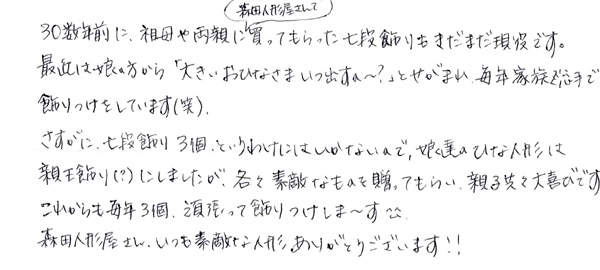 森田人形屋さんで
30数年前に、祖母や両親に買ってもらった七段飾りもまだまだ現役です。
最近は娘の方から「大きいおひなさまいつ出すの〜?」とせがまれ、毎年家族総手で
飾りつけをしています(笑)。
さすがに、七段飾り3個、というわけにはいかないので、娘達のひな人形は
親王飾り(?)にしましたが、各々素敵なものを贈ってもらい、親子共々大喜びです
これからも毎年3個、頑張って飾りつけしま〜す
森田人形屋さん、いつも素敵な人形、ありがとうございます!!